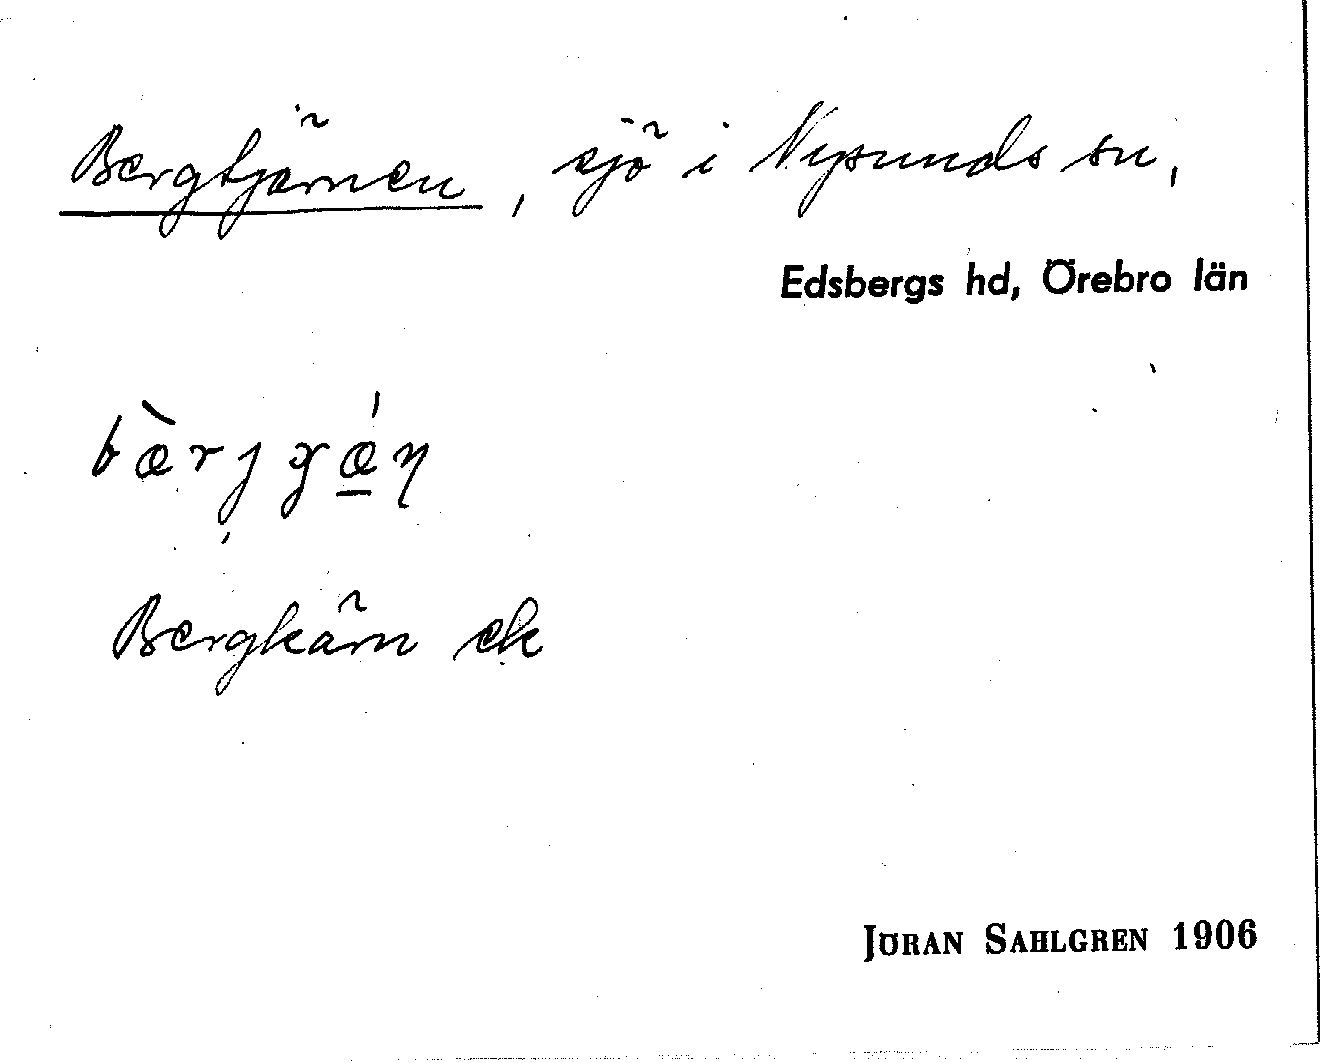 Bergtjärnen, sjö i Nysunds sn,
Edsbergs hd, Örebro län
Bergkärn ek
JÖRAN SAHLGREN 1906